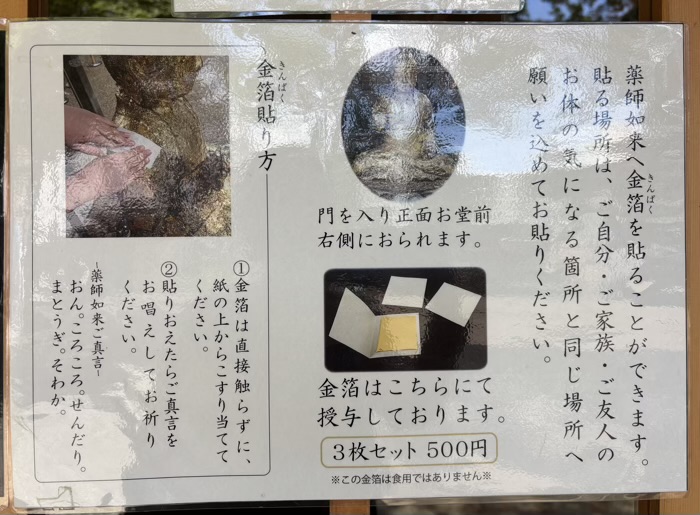 薬師如来へ金箔を貼ることができます。
きんぱく
貼る場所は、ご自分・ご家族・ご友人の
お体の気になる箇所と同じ場所へ
願いを込めてお貼りください。
門を入り正面お堂前
右側におられます。
金箔はこちらにて
授与しております。
3枚セット 500円
※この金箔は食用ではありません※
金箔貼り方
きんぱく
①金箔は直接触らずに、
紙の上からこすり当てて
ください。
②貼りおえたらご真言を
お唱えしてお祈り
ください。
~薬師如来ご真言~
おん。ころころ。せんだり。
まとうぎ。そわか。